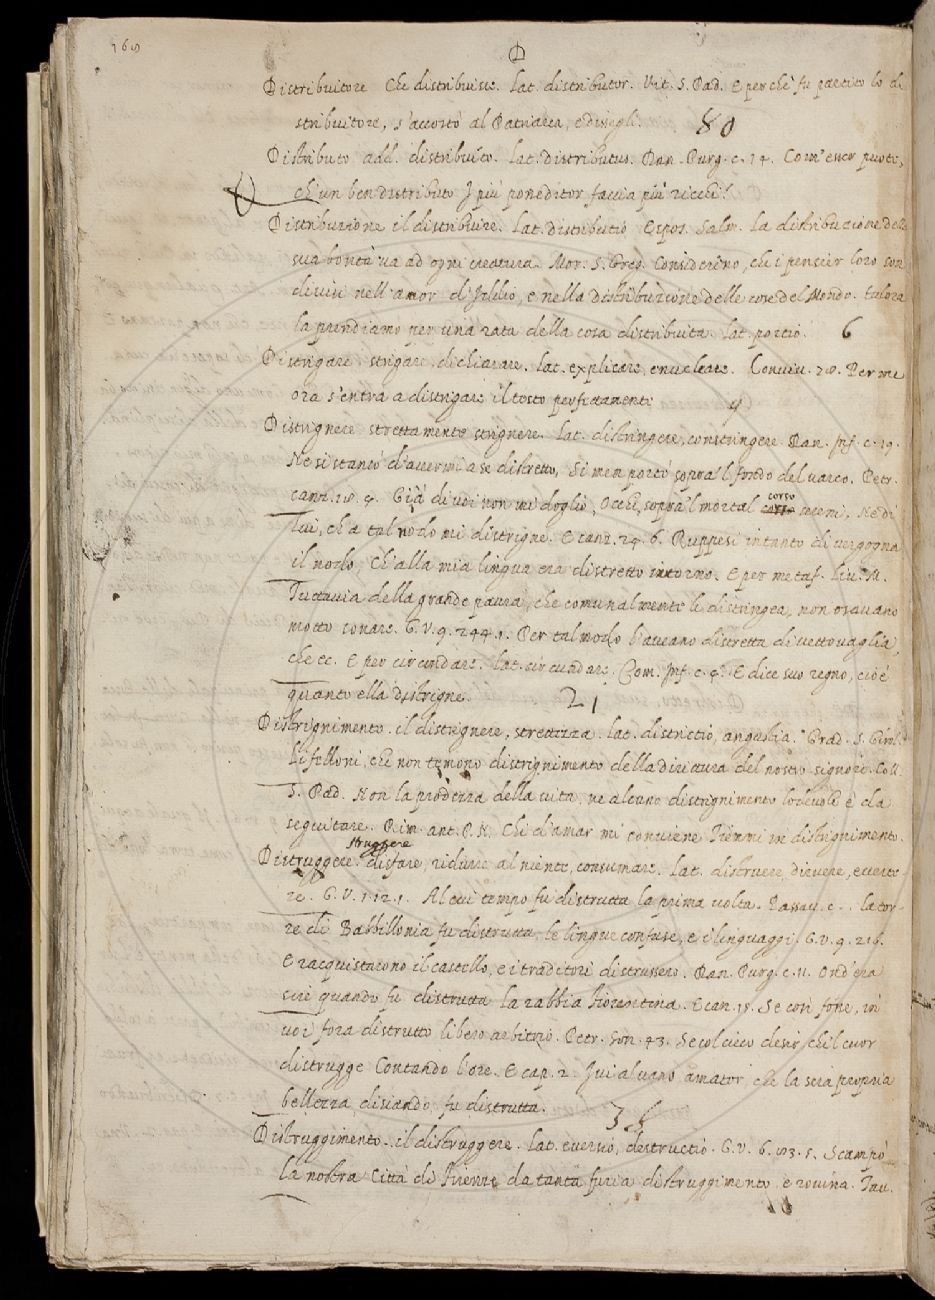 169
D
Distribuitore Che distribuisce. Lat. distributor. Vit. S. Pad. E perchè fu partito lo di
stribuitore, s'accorto al Patriarca, e dissegli. 80
Distributo add. distribuito. Lat. distributus. Dan. Purg. c. 14. Com'esser puote,
ch'un ben distributo I più posseditor faccia più ricchi?
Distribuzione il distribuire. Lat. distributio Espos. Salm. La distribuzione della
sua bontà va ad ogni creatura. Mor. S. Greg. Considerino, che i pensier loro son
divisi nell'amor d'Iddio, e nella distribuzione delle cose del Mondo. talora
la prendiamo per una rata della cosa distribuita. Lat. portio. 6
Distrigare strigare. dichiarare. Lat. explicare, enucleare. Conviv. 28. Per me
ora s'entra a distrigare il testo perfettamente
Distrignere strettamente strignere. Lat. distringere, constringere. Dan. Inf. c. 19.
Ne si stancò d'avermi a se distretto, Si men portò sopra'l fondo del varco. Petr.
canz. 28. 4. Già di voi non mi doglio, Occhi, sopra'l mortal corso sereni, Ne di
lui, ch'a tal nodo mi distrigne. E canz. 24. 6. Ruppesi intanto di vergogna
il nodo, Ch'alla mia lingua era distretto intorno. E per metaf. Liv. M.
Tuttavia della grande paura, che comunalmente li distringea, non osavano
motto sonare. G. V. 9. 244. 1. Per tal modo l'aveano distretta di vettovaglia,
che ec. E per circundare. Lat. circundare. Com. Inf. c. 4. E dice suo regno, cioè
quanto ella distrigne. 21
Distrignimento. il distrignere, strettezza. Lat. districtio, angustia. Grad. S. Girol.
Li felloni, che non temono distrignimento della dirittura del nostro signore. Coll.
S. Pad. Non la prodezza della vita, ne alcuno distrignimento lodevole è da
seguitare. Rim. ant. P. N. Chi d'amar mi conviene Tiemmi in distrignimento.
struggere
Distruggere. disfare, ridurre al niente, consumare. Lat. distruere, diruere, everte
re. G. V. 1. 12. 1. Al cui tempo fu distrutta la prima volta. Passav. c. . la tor-
re di Babbillonia fu distrutta, le lingue confuse, e i linguaggi. G. V. 9. 216.
E racquistarono il castello, e i traditori distrussero. Dan. Purg. c. 11. Ond'era
sire quando fu distrutta la rabbia fiorentina. E can. 15. Se così fosse, in
voi fora distrutto libero arbitrio. Petr. Son. 43. Se col cieco desir, che'l cuor
distrugge Contando l'ore. E cap. 2. Ivi al vano amator, che la sua propria
bellezza disiando, fu distrutto. 36
Distruggimento. il distruggere. Lat. eversio, destructio. G. V. 6. 83. 5. Scampò
la nostra Città di Firenze da tanta furia distruggimento e rovina. Tav.